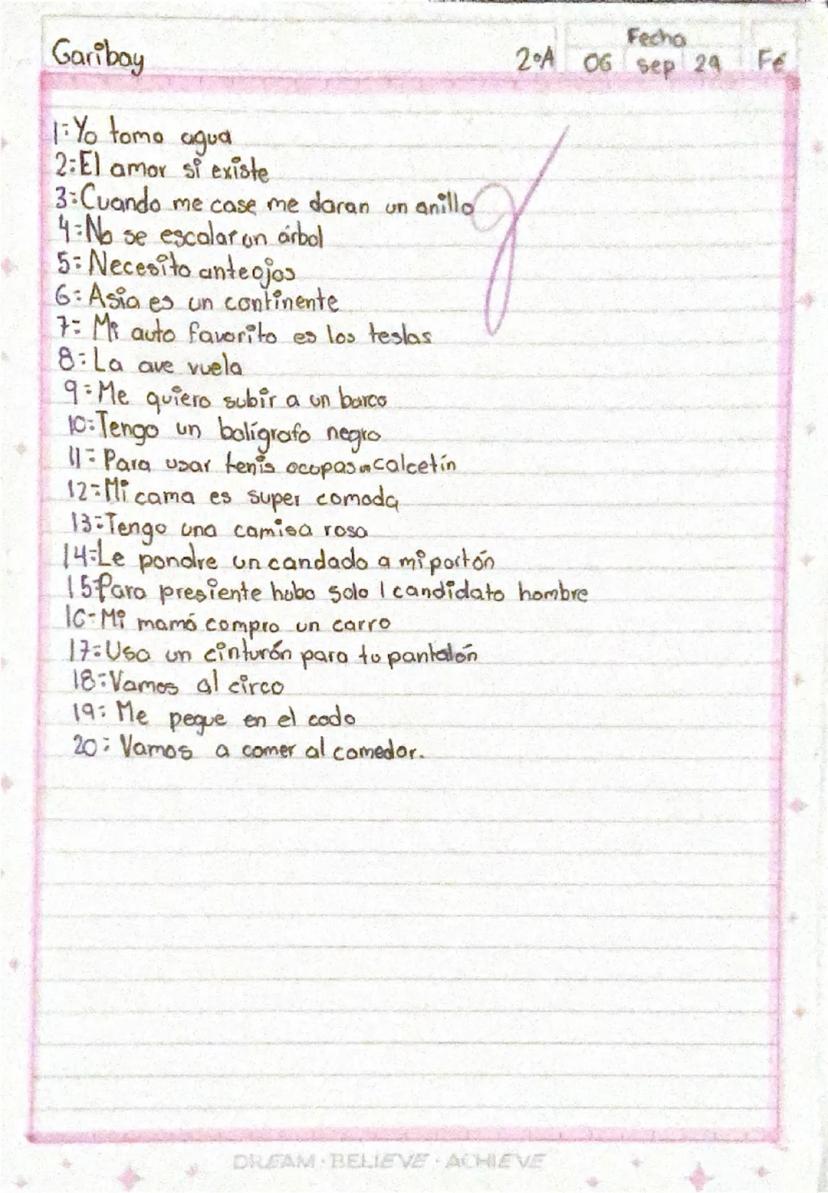 Fecha
Garibay 2ºA 06 sep 24 Fé
1:Yo tomo agua
2:El amor si existe
3:Cuando me case me daran un anillo
4:No se escalar un árbol
5:Necesito anteojos
6:Asia es un continente
7:Mi auto favorito es los teslas
8:La ave vuela
9:Me quiero subir a un barco
10:Tengo un bolígrafo negro
11:Para usar tenis ocupas un calcetín
12:Mi cama es super comoda
13:Tengo una camisa rosa
14:Le pondre un candado a mi portón
15:Para presiente hubo solo 1 candidato hombre
16:Mi mamá compro un carro
17:Usa un cinturón para tu pantalón
18:Vamos al circo
19:Me pegue en el codo
20:Vamos a comer al comedor.
DREAM · BELIEVE · ACHIEVE